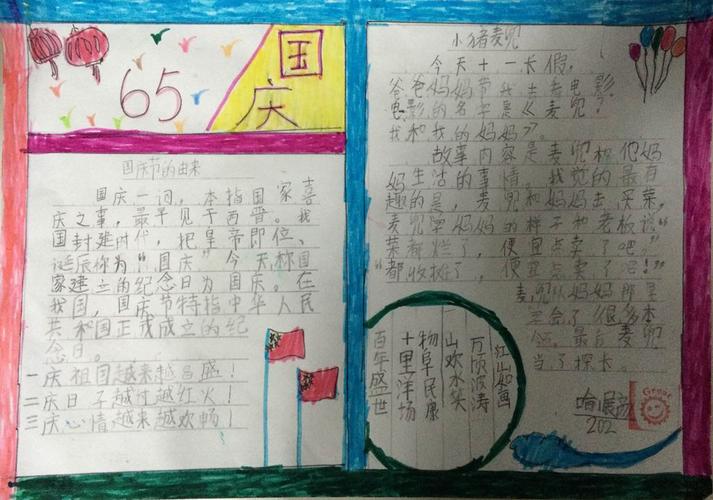 65
国
庆
国庆节的由来
国庆一词，本指国家喜
庆之事，最早见于西晋。我
国封建时代，把皇帝即位、
诞辰称为“国庆”今天称国
家建立的纪念日为国庆。在
我国，国庆节特指中华人民
共和国正式成立的纪
念日。
一庆祖国越来越昌盛！
二庆日子越过越红火！
三庆心情越来越欢畅！
小猪麦兜
今天十一长假，
爸爸妈妈带我去看电影。
电影的名字是《麦兜：
我和我的妈妈》。
故事内容是麦兜和他妈
妈生活的事情。我觉的最有
趣的是，麦兜和妈妈去买菜，
麦兜学妈妈的样子和老板说“
菜都烂了，便宜点卖了吧。”
“都收摊了，便宜点卖了吧！”
麦兜从妈妈那里
学会了很多本
领。最后麦兜
当了探长。
江山如画
万顷波涛
山欢水笑
物阜民康
十里洋场
百年盛世
Great
202